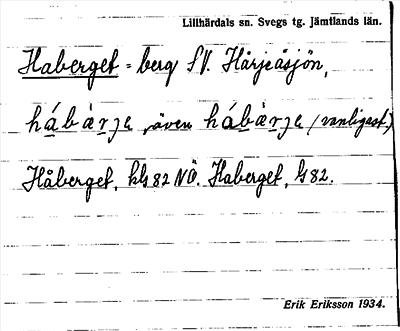 Lillhärdals sn. Svegs tg. Jämtlands län.
Haberget = berg S.V. Härjeåsjön,
hábàrjɛ, även hábàrjɛ (vanligast)
Håberget, hls 82 NÖ. Haberget, ls 82.
Erik Eriksson 1934.